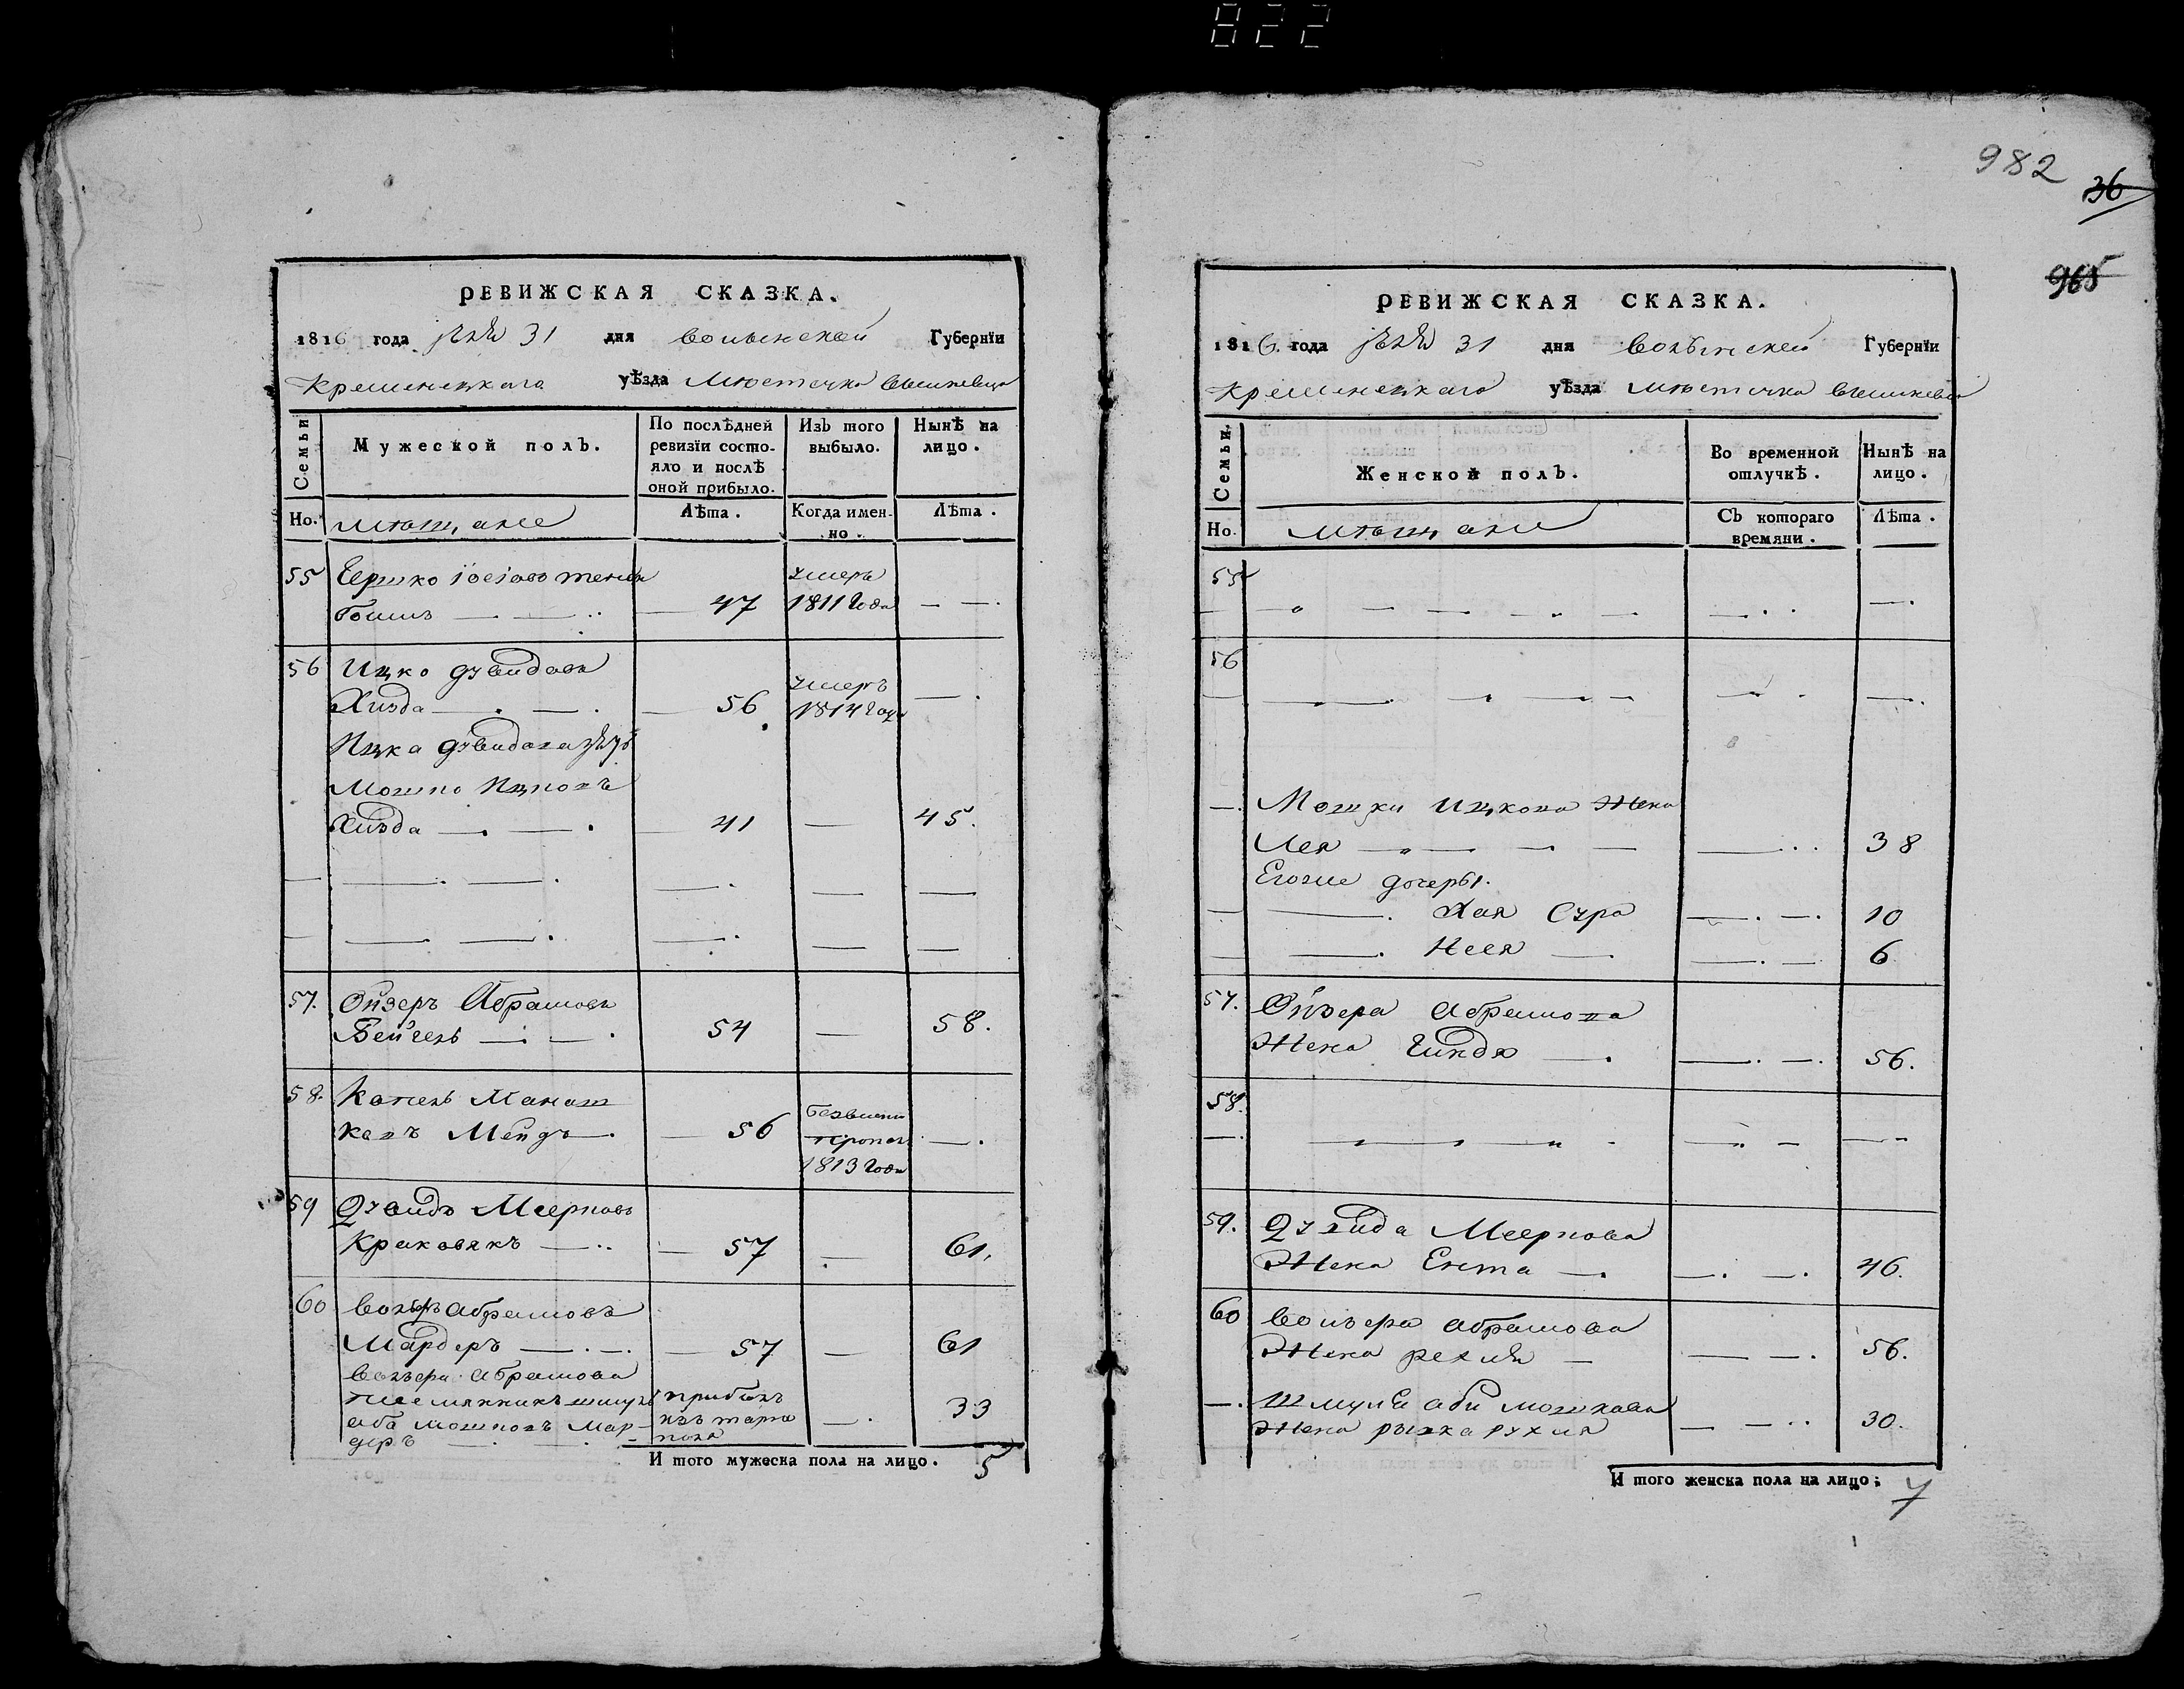 822
РЕВИЖСКАЯ СКАЗКА.
1816 года 31 дня Волынской Губернїи
Кременецкаго уѣзда Мѣстечка Вышневца
Семьи
Мужеской полъ.
По послѣдней ревизїи состояло и послѣ оной прибыло.
Изъ того выбыло.
Нынѣ на лицо.
Но. Мѣщане
Лѣта.
Когда именно.
Лѣта.
55 Гершко
47 умеръ 1811 Года — —.
56 Ицко Дувидовъ
Хизда — . — . 56 умеръ 1814 Года — .
Ицка Дувидова
Мошко Ицковъ
Хизда — . — . 41 — 45.
57. Ойзеръ Абрамовъ
Бейгель — . — . 54 — 58.
58. Копель Манаш
ковъ 56 безвѣсти пропалъ 1813 Года — .
59 Дувидъ Меерковъ
Краковякъ — .. — 57 — 61.
60 Вольферъ Абрамовъ
Мардеръ — . — . — 57 — 61
Вольфера Абрамова
племянникъ Шмуль прибылъ
аба Мошковъ Мар- изъ Тарно — . 33
деръ — . — . — поля
И того мужеска пола на лицо. 5
982
36
965
РЕВИЖСКАЯ СКАЗКА.
1816. года 31 дня Волынской Губернїи
Кременецкаго уѣзда Мѣстечка Вышневца
Семьи.
Женской полъ.
Во временной отлучкѣ.
Нынѣ на лицо.
Но. Мѣщане
Съ котораго времяни.
Лѣта.
55
56
— . Мошки Ицкова Жена
Лея 38
Егоже дочеры.
— . Хая Сура — . — . 10
— . Неся — — . — 6
57. Ойзера Абрамова
Жена Гиндя — . — . — . 56.
58.
59. Дувида Мееркова
Жена Ента — . — . — . 46.
60 Вольфера Абрамова
Жена Рехля — — — . 56.
— . Шмуля аби Мошкова
Жена Рухля — — .. 30.
И того женска пола на лицо; 7